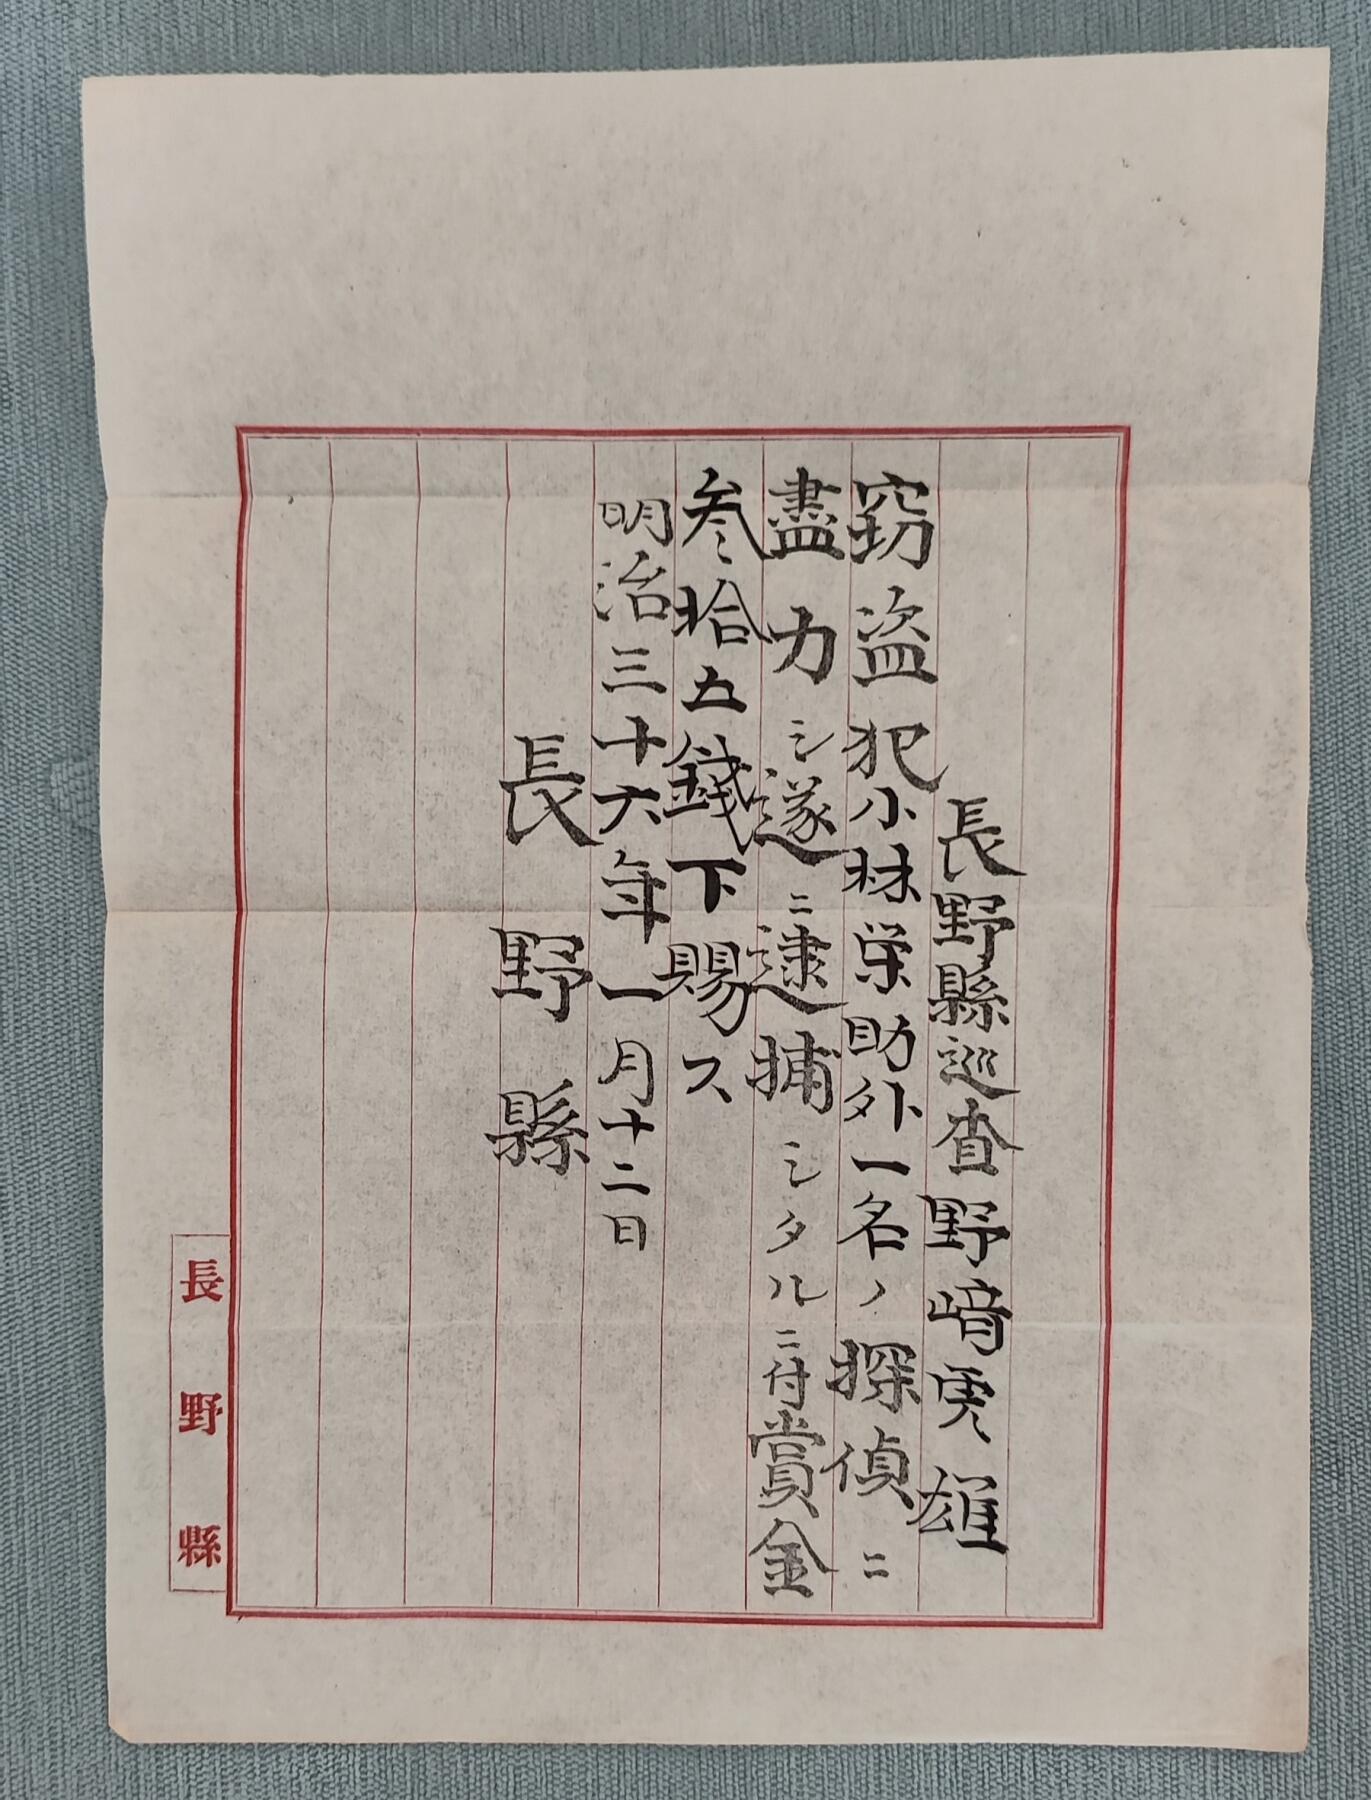 長野縣巡査野﨑寅雄
窃盗犯小林栄助外一名ノ探偵ニ
盡力シ遂ニ逮捕シタルニ付賞金
参拾五錢下賜ス
明治三十六年一月十二日
長野縣
長野縣